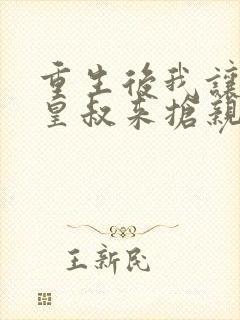 重生後我讓
皇叔來搶親
王新民